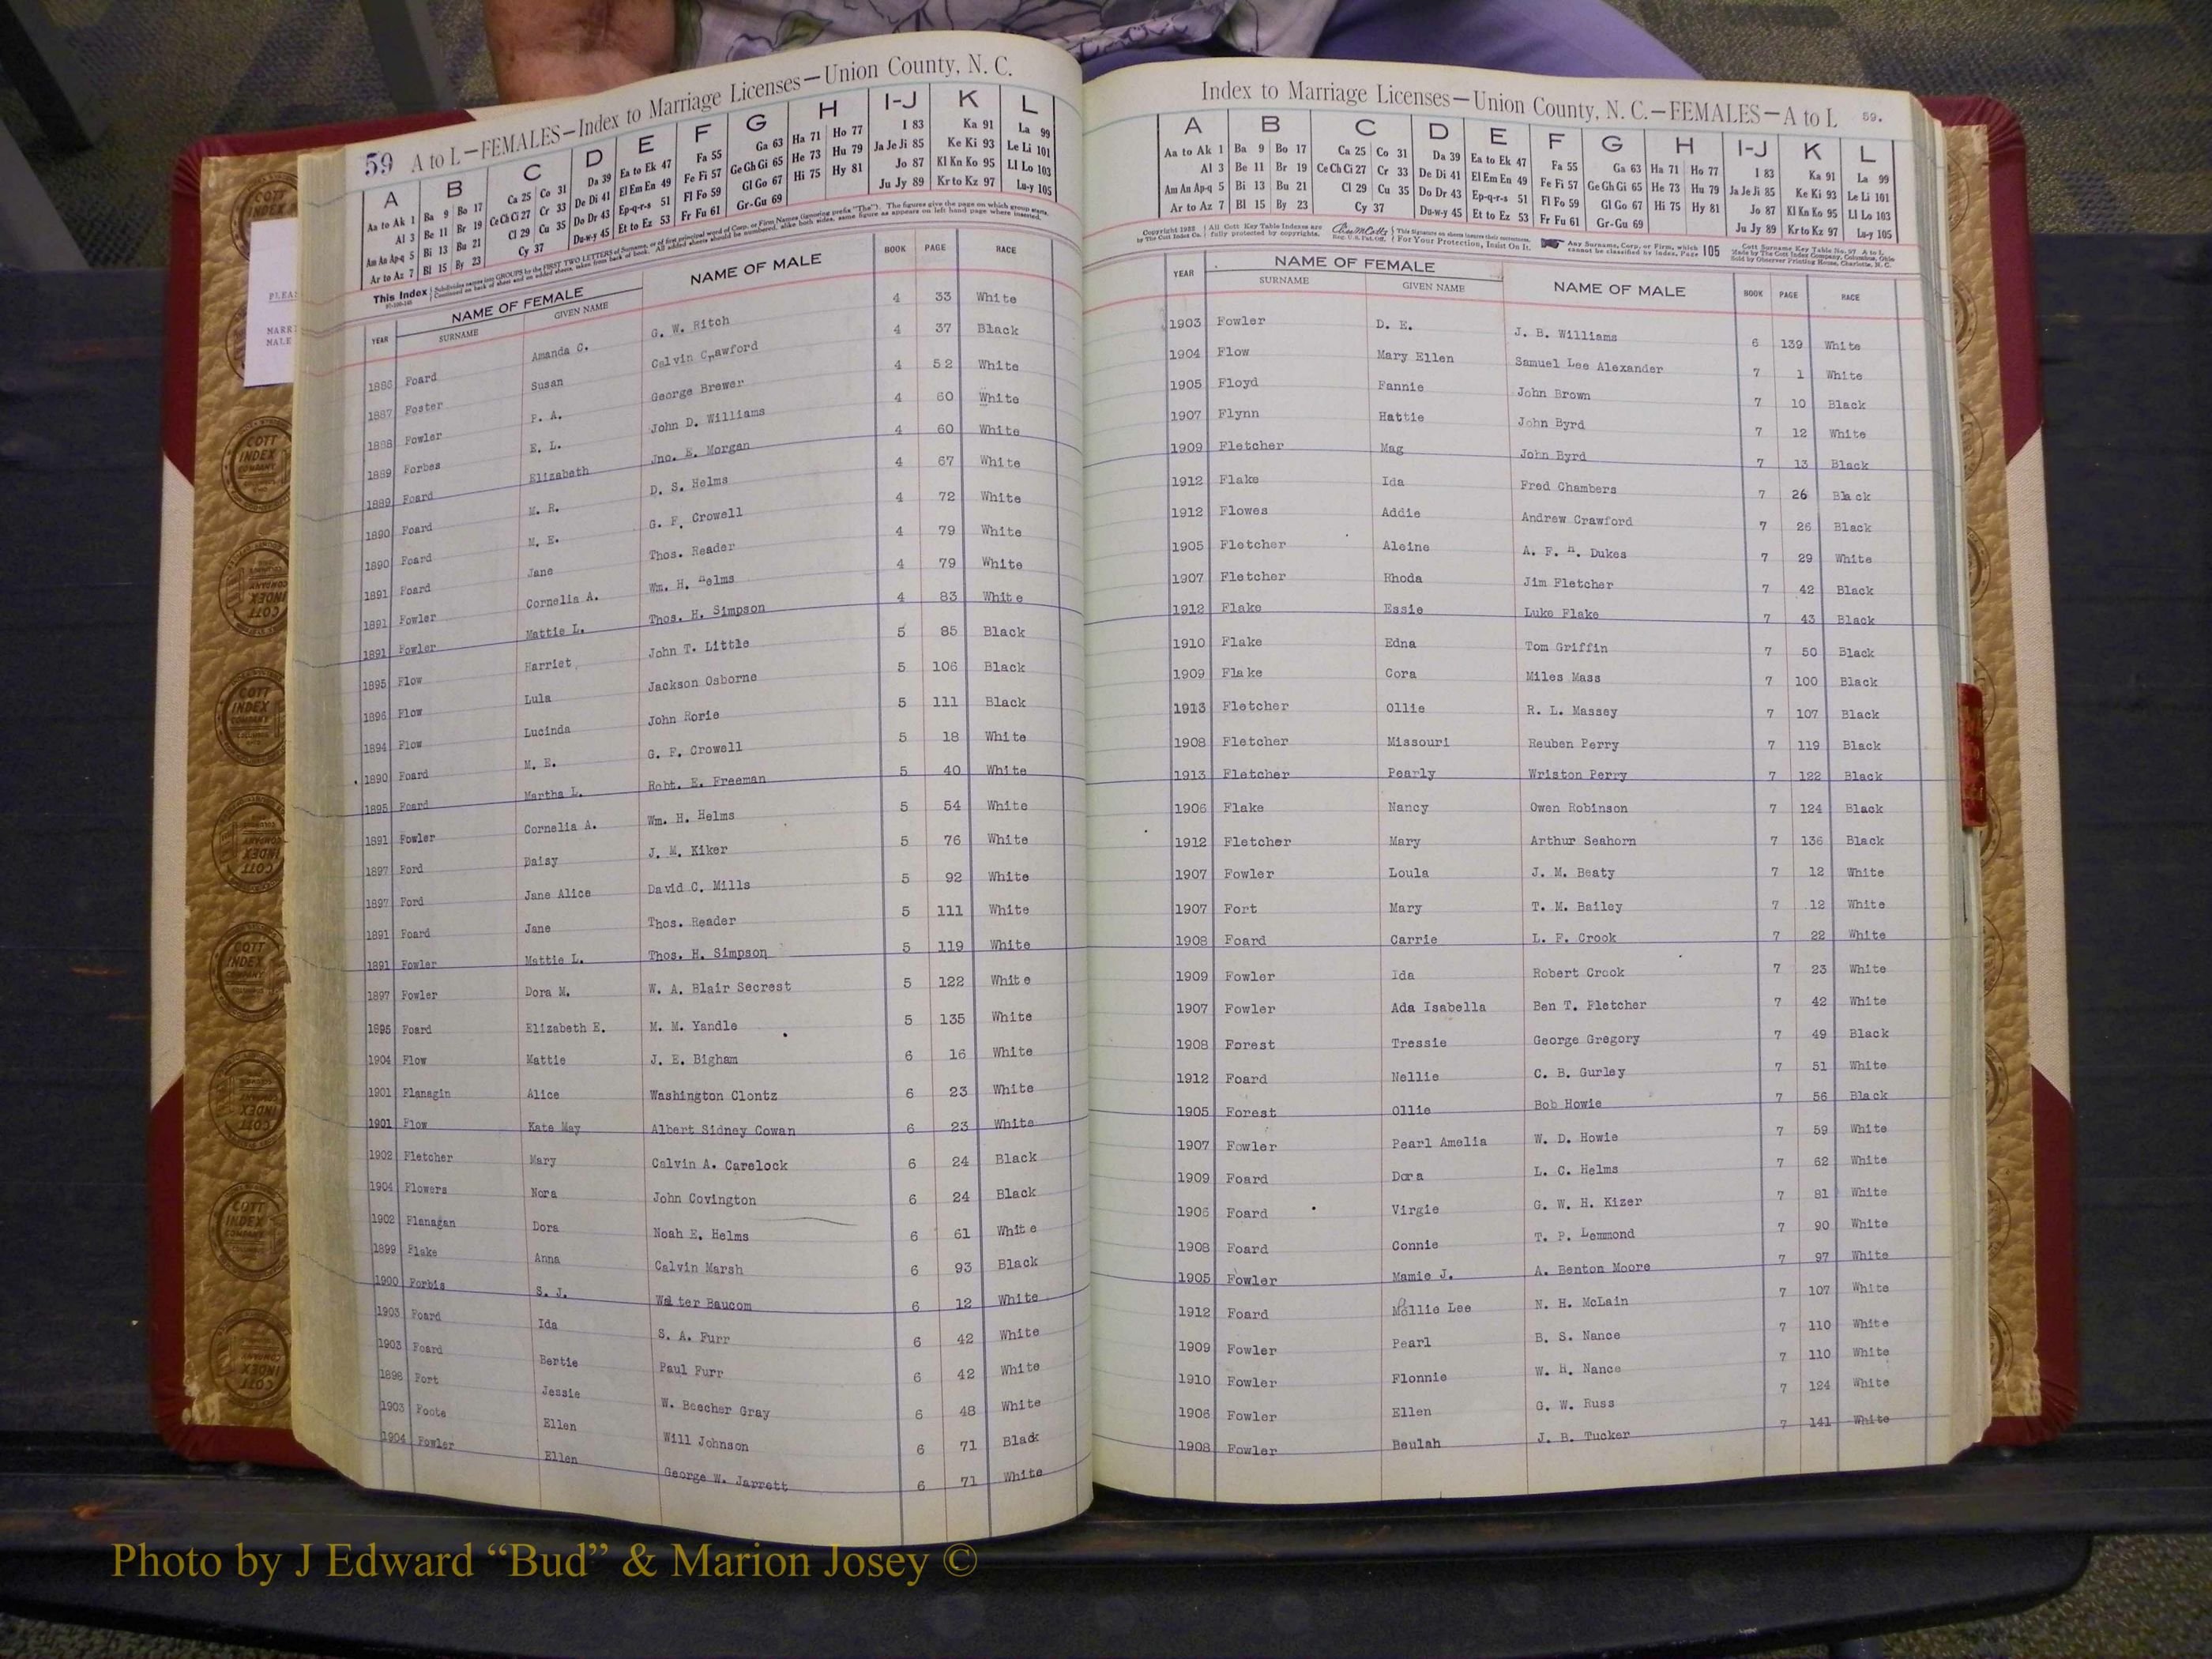 59 A to L—FEMALES—Index to Marriage Licenses—Union County, N. C.
A B C D E F G H I-J K L
Aa to Ak 1 Ba 9 Bo 17 Ca 25 Co 31 Da 39 Ea to Ek 47 Fa 55 Ga 63 Ha 71 Ho 77 I 83 Ka 91 La 99
Al 3 Be 11 Br 19 Ce Ch Ci 27 Cr 33 De Di 41 El Em En 49 Fe Fi 57 Ge Gh Gi 65 He 73 Hu 79 Ja Je Ji 85 Ke Ki 93 Le Li 101
Am An Ap-q 5 Bi 13 Bu 21 Cl 29 Cu 35 Do Dr 43 Ep-q-r-s 51 Fl Fo 59 Gl Go 67 Hi 75 Hy 81 Jo 87 Kl Kn Ko 95 Ll Lo 103
Ar to Az 7 Bl 15 By 23 Cy 37 Du-w-y 45 Et to Ez 53 Fr Fu 61 Gr-Gu 69 Ju Jy 89 Kr to Kz 97 Lu-y 105
This Index
YEAR NAME OF FEMALE SURNAME GIVEN NAME NAME OF MALE BOOK PAGE RACE
1886 Foard Amanda C. G. W. Ritch 4 33 White
1887 Foster Susan Calvin Crawford 4 37 Black
1888 Fowler F. A. George Brewer 4 52 White
1889 Forbes E. L. John D. Williams 4 60 White
1889 Foard Elizabeth Jno. E. Morgan 4 60 White
1890 Foard M. R. D. S. Helms 4 67 White
1890 Foard M. E. G. F. Crowell 4 72 White
1891 Foard Jane Thos. Reader 4 79 White
1891 Fowler Cornelia A. Wm. H. Helms 4 79 White
1891 Fowler Mattie L. Thos. H. Simpson 4 83 White
1895 Flow Harriet John T. Little 5 85 Black
1896 Flow Lula Jackson Osborne 5 106 Black
1894 Flow Lucinda John Rorie 5 111 Black
1890 Foard M. E. G. F. Crowell 5 18 White
1895 Foard Martha L. Robt. E. Freeman 5 40 White
1891 Fowler Cornelia A. Wm. H. Helms 5 54 White
1897 Ford Daisy J. M. Kiker 5 76 White
1897 Ford Jane Alice David C. Mills 5 92 White
1891 Foard Jane Thos. Reader 5 111 White
1891 Fowler Mattie L. Thos. H. Simpson 5 119 White
1897 Fowler Dora M. W. A. Blair Secrest 5 122 White
1895 Foard Elizabeth E. M. M. Yandle 5 135 White
1904 Flow Mattie J. E. Bigham 6 16 White
1901 Flanagin Alice Washington Clontz 6 23 White
1901 Flow Kate May Albert Sidney Cowan 6 23 White
1902 Fletcher Mary Calvin A. Carelock 6 24 Black
1904 Flowers Nora John Covington 6 24 Black
1902 Flanagan Dora Noah E. Helms 6 61 White
1899 Flake Anna Calvin Marsh 6 93 Black
1900 Forbis S. J. Walter Baucom 6 12 White
1903 Foard Ida S. A. Furr 6 42 White
1903 Foard Bertie Paul Furr 6 42 White
1898 Fort Jessie W. Beecher Gray 6 48 White
1903 Foote Ellen Will Johnson 6 71 Black
1904 Fowler Ellen George W. Jarrett 6 71 White
Index to Marriage Licenses—Union County, N. C.—FEMALES—A to L 59.
A B C D E F G H I-J K L
Aa to Ak 1 Ba 9 Bo 17 Ca 25 Co 31 Da 39 Ea to Ek 47 Fa 55 Ga 63 Ha 71 Ho 77 I 83 Ka 91 La 99
Al 3 Be 11 Br 19 Ce Ch Ci 27 Cr 33 De Di 41 El Em En 49 Fe Fi 57 Ge Gh Gi 65 He 73 Hu 79 Ja Je Ji 85 Ke Ki 93 Le Li 101
Am An Ap-q 5 Bi 13 Bu 21 Cl 29 Cu 35 Do Dr 43 Ep-q-r-s 51 Fl Fo 59 Gl Go 67 Hi 75 Hy 81 Jo 87 Kl Kn Ko 95 Ll Lo 103
Ar to Az 7 Bl 15 By 23 Cy 37 Du-w-y 45 Et to Ez 53 Fr Fu 61 Gr-Gu 69 Ju Jy 89 Kr to Kz 97 Lu-y 105
YEAR NAME OF FEMALE SURNAME GIVEN NAME NAME OF MALE BOOK PAGE RACE
1903 Fowler D. E. J. B. Williams 6 139 White
1904 Flow Mary Ellen Samuel Lee Alexander 7 1 White
1905 Floyd Fannie John Brown 7 10 Black
1907 Flynn Hattie John Byrd 7 12 White
1909 Fletcher Mag John Byrd 7 13 Black
1912 Flake Ida Fred Chambers 7 26 Black
1912 Flowes Addie Andrew Crawford 7 26 Black
1905 Fletcher Aleine A. F. H. Dukes 7 29 White
1907 Fletcher Rhoda Jim Fletcher 7 42 Black
1912 Flake Essie Luke Flake 7 43 Black
1910 Flake Edna Tom Griffin 7 50 Black
1909 Flake Cora Miles Mass 7 100 Black
1913 Fletcher Ollie R. L. Massey 7 107 Black
1908 Fletcher Missouri Reuben Perry 7 119 Black
1913 Fletcher Pearly Wriston Perry 7 122 Black
1906 Flake Nancy Owen Robinson 7 124 Black
1912 Fletcher Mary Arthur Seahorn 7 136 Black
1907 Fowler Loula J. M. Beaty 7 12 White
1907 Fort Mary T. M. Bailey 7 12 White
1908 Foard Carrie L. F. Crook 7 22 White
1909 Fowler Ida Robert Crook 7 23 White
1907 Fowler Ada Isabella Ben T. Fletcher 7 42 White
1908 Forest Tressie George Gregory 7 49 Black
1912 Foard Nellie C. B. Gurley 7 51 White
1905 Forest Ollie Bob Howie 7 56 Black
1907 Fowler Pearl Amelia W. D. Howie 7 59 White
1909 Foard Dora L. C. Helms 7 62 White
1906 Foard Virgie G. W. H. Kizer 7 81 White
1908 Foard Connie T. P. Lemmond 7 90 White
1905 Fowler Mamie J. A. Benton Moore 7 97 White
1912 Foard Mollie Lee N. H. McLain 7 107 White
1909 Fowler Pearl B. S. Nance 7 110 White
1910 Fowler Flonnie W. H. Nance 7 110 White
1906 Fowler Ellen G. W. Russ 7 124 White
1908 Fowler Beulah J. B. Tucker 7 141 White
Photo by J Edward “Bud” & Marion Josey ©